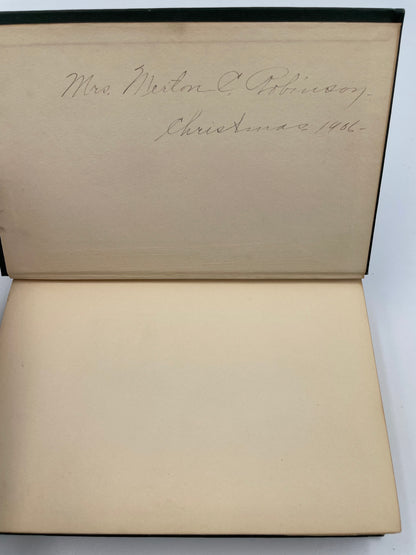 Mrs. Merton C. Robinson.
Christmas 1906-